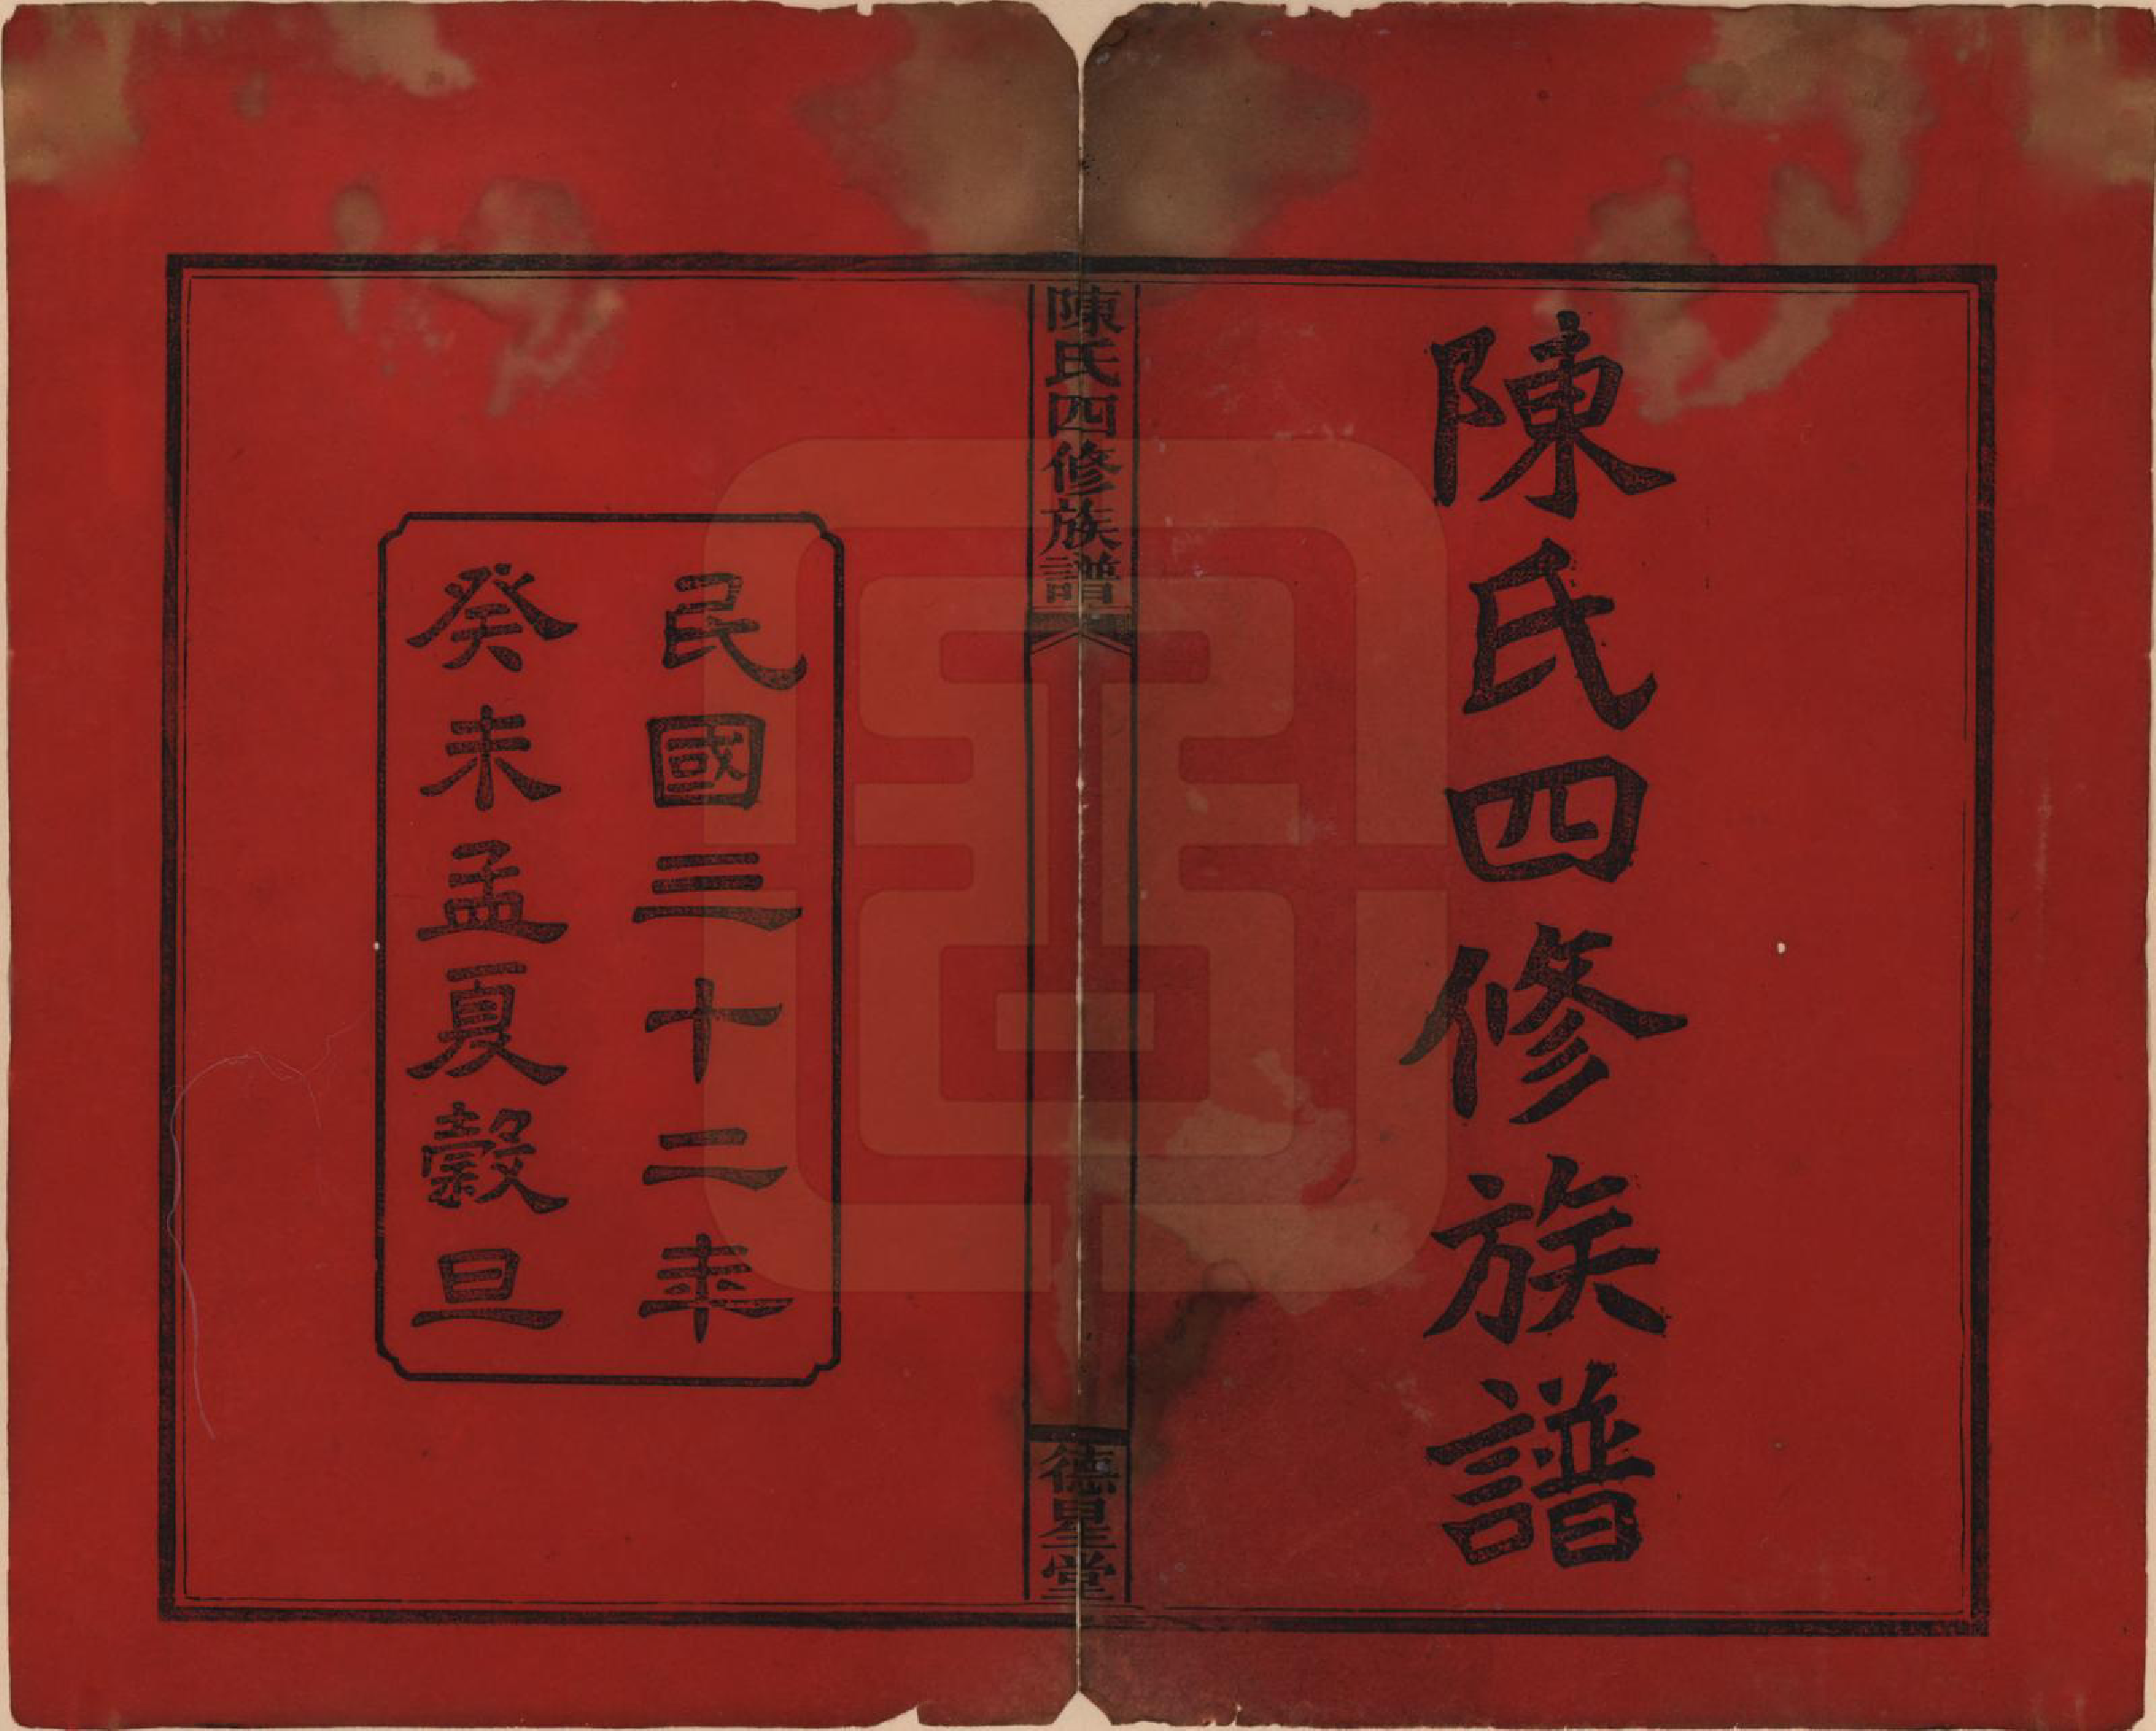 陳氏四修族譜
陳氏四修族譜
德星堂
民國三十二年
癸未孟夏穀旦